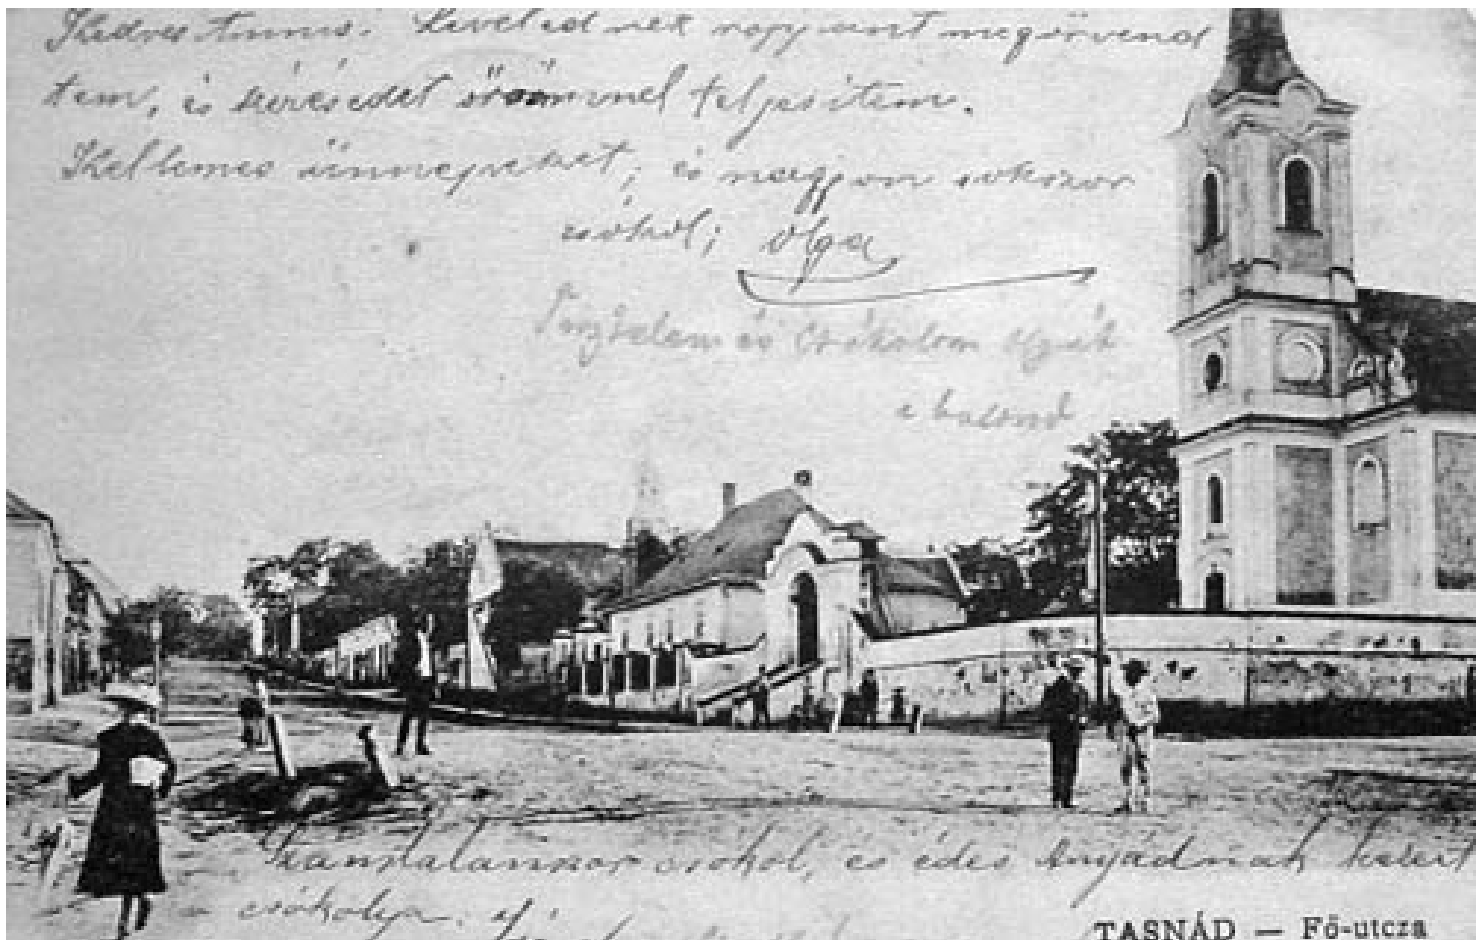 Kedves Annus! Leveled nek nagy an megörvend
tem, és kérésedet örömmel teljesitem.
Kellemes ünnepeket, és nagyon sokszor
csókol; Olga
és Csókolom
Számtalanszor csókol, és édes Anyádnak kezeit
csókolja.
TASNÁD — Fő-utcza